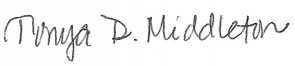 Tonya D. Middleton